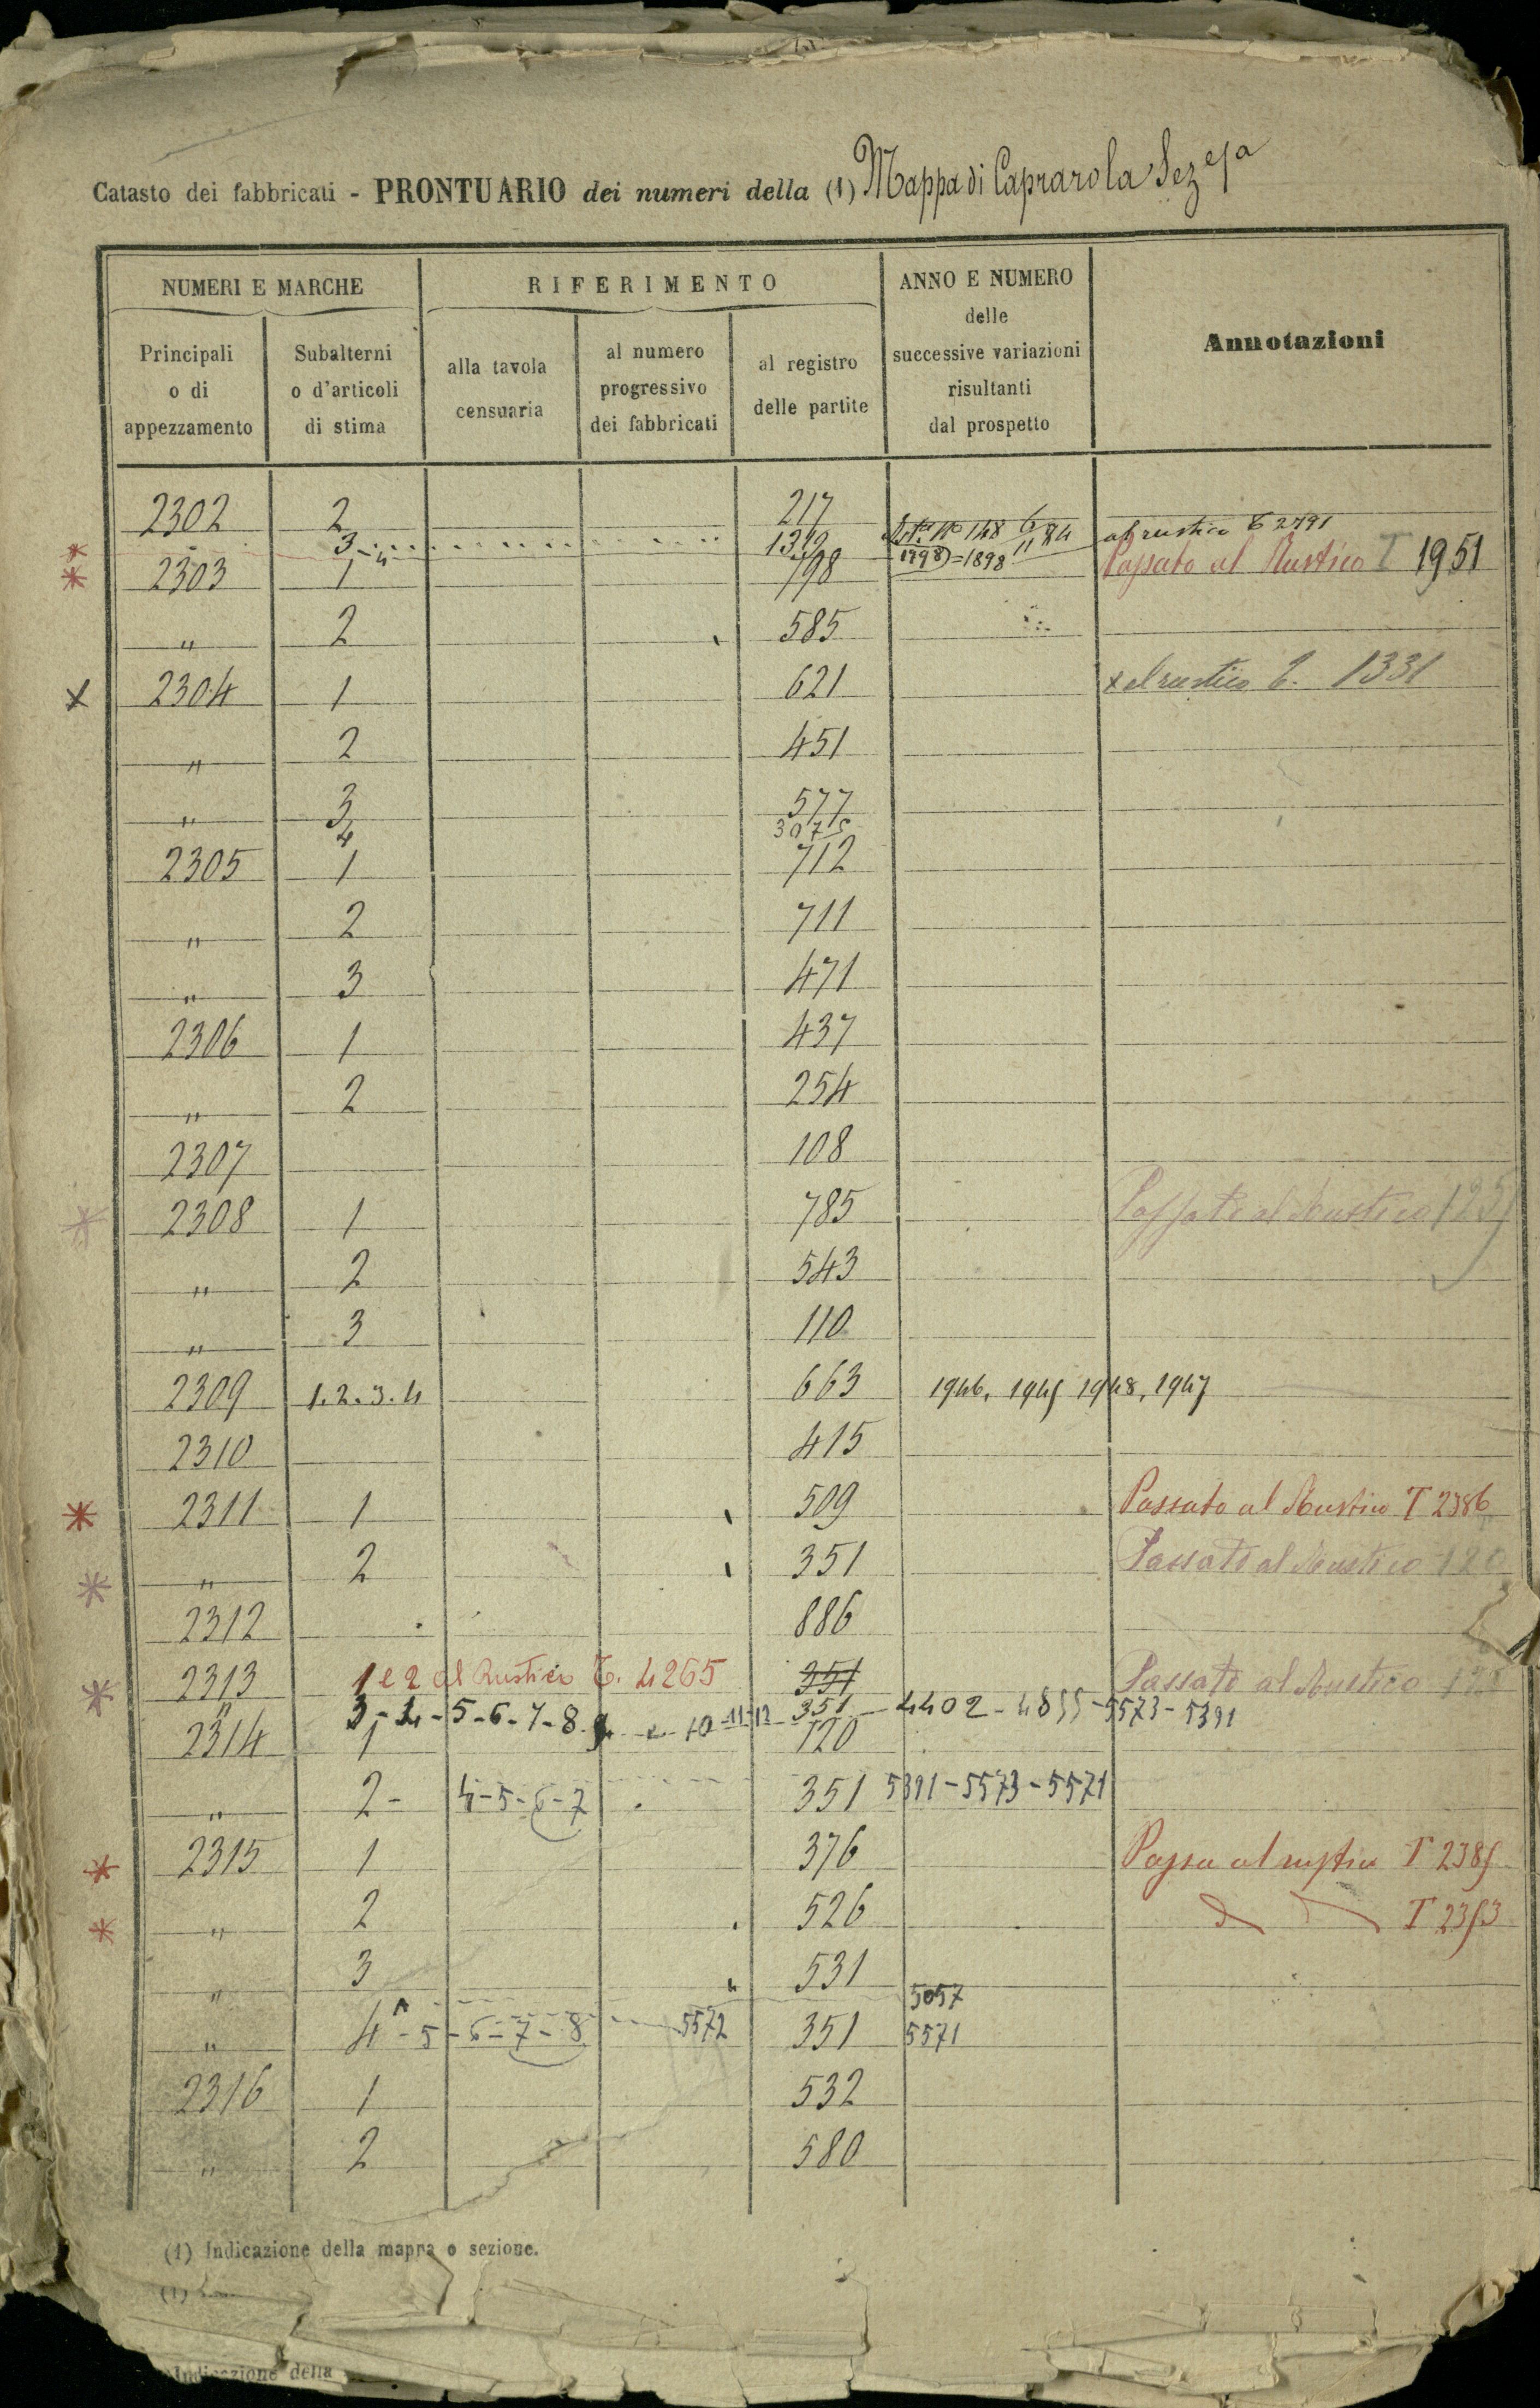 Catasto dei fabbricati - PRONTUARIO dei numeri della (1) Mappa di Caprarola Sez 1a
NUMERI E MARCHE
RIFERIMENTO
ANNO E NUMERO
delle
successive variazioni
risultanti
dal prospetto
Annotazioni
Principali
o di
appezzamento
Subalterni
o d'articoli
di stima
alla tavola
censuaria
al numero
progressivo
dei fabbricati
al registro
delle partite
2302 2 217
3-4 148 al rustico T 2791
2303 1 798 =1898 Passato al Rustico T 1951
" 2 585
x 2304 1 621 x al rustico T. 1331
" 2 451
" 3 577
4 3075
2305 1 712
" 2 711
" 3 471
2306 1 437
" 2 254
2307 108
* 2308 1 785 Passato al Rustico
" 2 543
" 3 110
2309 1.2.3.4 663 1946, 1945 1948, 1947
2310 415
* 2311 1 509 Passato al Rustico T 2386
* " 2 351 Passato al Rustico
2312 886
* 2313 1 e 2 al Rustico T. 4265 351 Passato al Rustico
" 3-4-5-6-7-8 10-11-12 351 - 4402 - 4855 - 5573 - 5391
2314 1 120
" 2- 4-5-6-7 351 5391-5573-5571
* 2315 1 376 Passa al rustico T 2385
* " 2 526 T 2353
" 3 531
5057
" 4-5-6-7-8 5572 351 5571
2316 1 532
" 2 580
(1) Indicazione della mappa o sezione.
(1)
Indicazione della